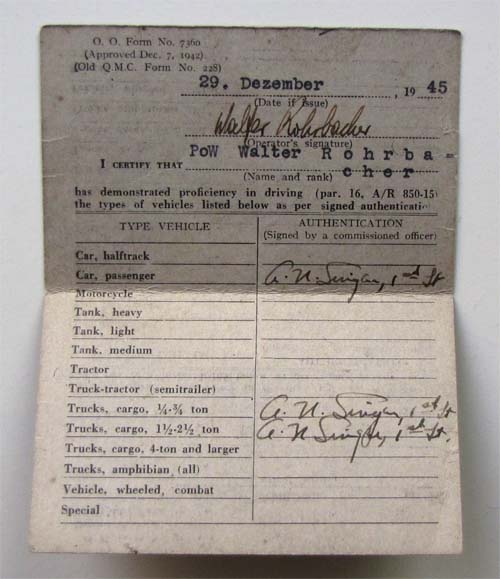 O. O. Form No. 7360
(Approved Dec. 7, 1942)
(Old Q.M.C. Form No. 228)
29. Dezember, 1945
(Date if issue)
Walter Rohrbacher
(Operator's signature)
I CERTIFY THAT PoW Walter Rohrba-
cher
(Name and rank)
has demonstrated proficiency in driving (par. 16, A/R 850-15)
the types of vehicles listed below as per signed
TYPE VEHICLE AUTHENTICATION
(Signed by a commissioned officer)
Car, halftrack
Car, passenger A. N. 1st Lt
Motorcycle
Tank, heavy
Tank, light
Tank, medium
Tractor
Truck-tractor (semitrailer)
Trucks, cargo, ¼-¾ ton A. N. 1st Lt
Trucks, cargo, 1½-2½ ton A. N 1st Lt.
Trucks, cargo, 4-ton and larger
Trucks, amphibian (all)
Vehicle, wheeled, combat
Special